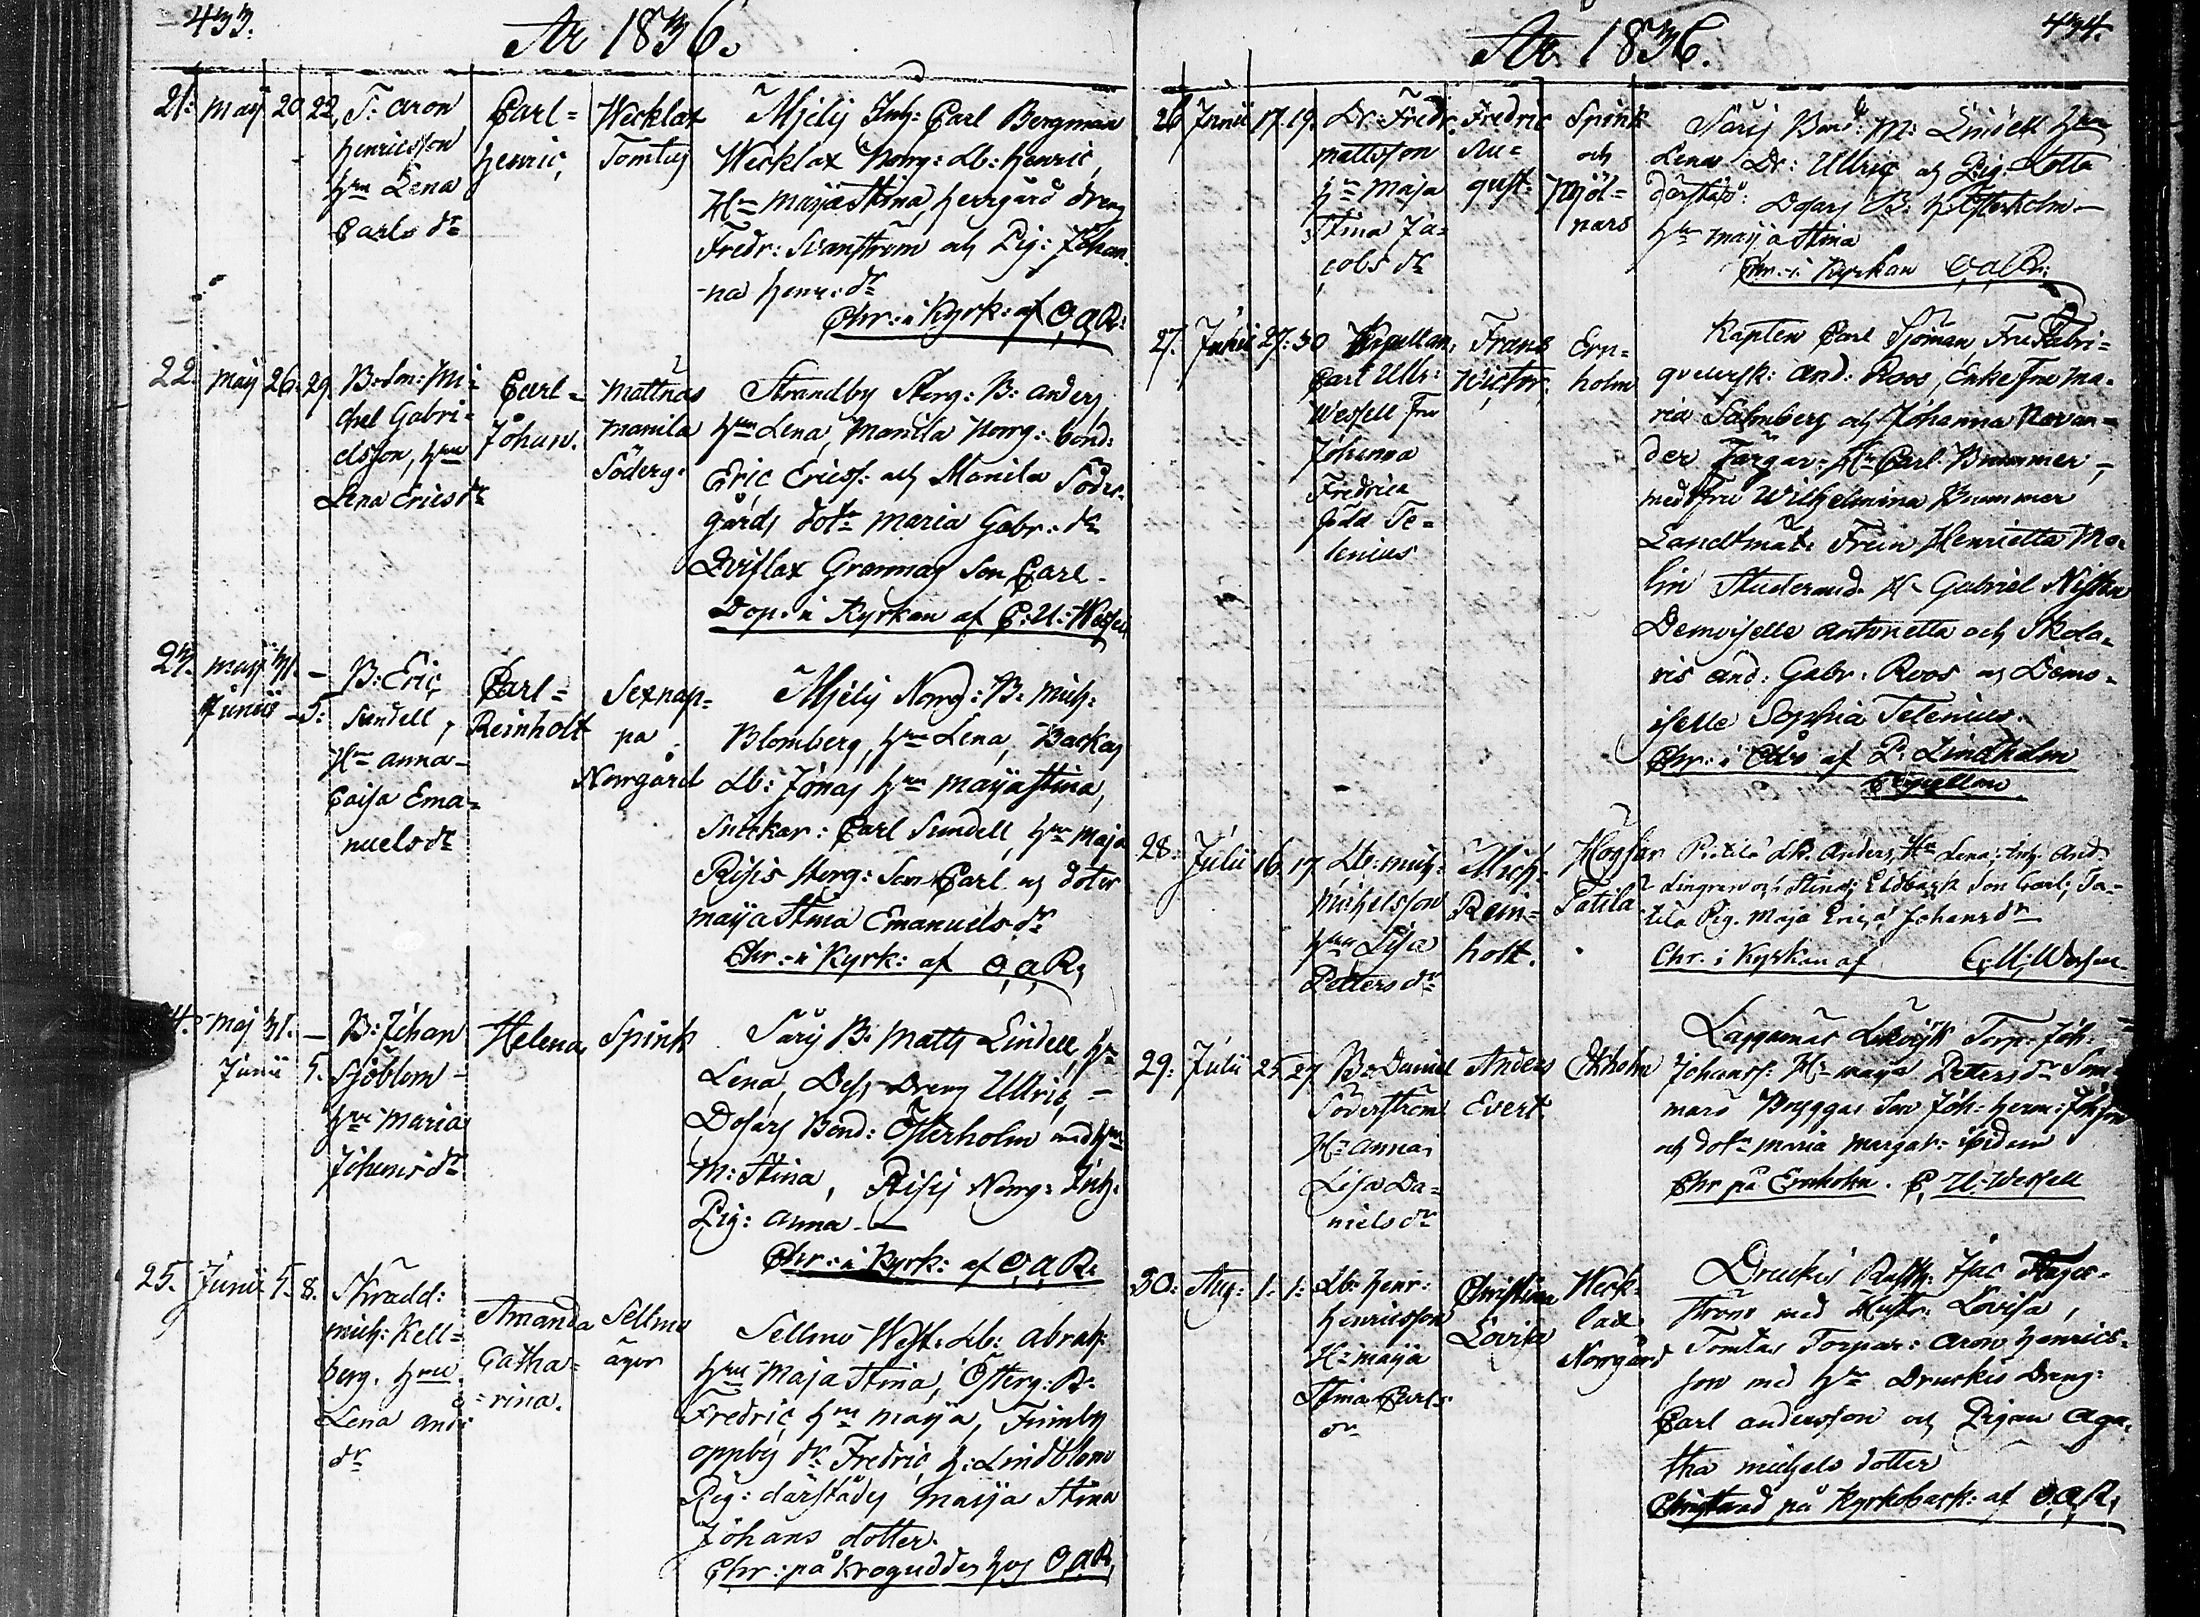 433.
År 1836.
21. May 20 22
T: Aron
Henricsson
Hru Lena
Carls dr
Carl=
Henric,
Wecklax
Tomtas
Mjelis Inh: Carl Bergman
Wecklax Norrg: Lb: Henric,
Hru Maja Stina, Herrgård dreng
Fredr: Svanström och Pig: Johan-
na Henr: dr
Chr: i Kyrk: af O,A,R:
22. May 26. 29.
B:dm: Mi-
chel Gabri-
elsson, Hru
Lena Erics dr
Carl=
Johan.
Mattnäs
Manila
Söderg:
Strandby Sterg: B: Anders
Hru Lena, Manila Norrg: bond:
Eric Ericss: och Manila Söder-
gårds dotr Maria Gabr: dr
Grannas Son Carl
Döp: i Kyrkan af C:U: Wessell
23. May 31. –
Junii – 5.
B: Eric
Sundell,
Hru Anna
Caisa Ema=
nuels dr
Carl=
Reinholt
Sexnap=
pa
Norrgård
Mjelis Norrg: B: Mich:
Blomberg, Hru Lena, Backas
Lb: Jonas Hru Maja Stina,
Snickar: Carl Sundell, Hru Maja
Risis Sterg: Son Carl og doter
Maja Stina Emanuels dr
Chr: i Kyrk: af O,A,R;
4. Maj 31. –
Junii 5.
B: Johan
Sjöblom
Hru Maria
Johans dr
Helena
Spink
Särs B: Matts Lindell, Hru
Lena, Dess Dreng Ulric,
Dosars Bond: Österholm med Hru
M: Stina, Risis Norrg: Inh:
Pig: Anna
Chr: i Kyrk: af O,A,R:
25. Junii 5. 8.
Skrädd:
Mich: Kell=
berg. Hru
Lena And:
dr
Amanda
Catha=
=rina.
Sellmo
ägor
Sellmo West: Lb: Abrah:
Hru Maja Stina, Österg: B:
Fredric, Hru Maja, Finnby
oppby dr: Fredric, H: Lindblom
Pig: därstädes Maja Stina
Johans dotter.
Chr: på Krogudden hos O,A,R,
434.
År 1836.
26 Junii 17. 19.
Dr: Fredr.
Mattsson
Hru Maja
Stina Ja=
cobs dr
Fredric
Au=
gust.
Spink
och
Mjöl=
nars
Särs Bond: M: Lindell Hru
Lena Dr: Ullric och Pig: Lotta
därstäd: Dosars B: H: Österholm
Hru Maja Stina
Chr: i Kyrkan O,A,R;
27. Junii 27. 30
Capellan:
Carl Ulr:
Wessell Fru
Johanna
Fredrica
född Te=
lenius
Frans
Wictor.
Ern=
holm
Kapten Carl Sjöman, Fru Fabri=
queursk: And: Roos, Enke Fru Ma-
ria Salmberg och Johanna Novan=
der Färgar: Hr Carl Brummer,
med Fru Wilhelmina Brummer
Landtmät: Fruin Henrietta Ma-
lin Studerand. Hr Gabriel
Demoiselle Antonetta och Skola-
ris And: Gabr: Roos og Demo-
iselle Sophia Telenius.
Chr: i Åbo af P: Lindholm
Capellan
28: Julii 16. 17
Lb: Mich:
Michelsson
Hru Lisa
Petters dr
Mich-
Rein=
holt.
Högsar
Tatila
Pettila Lb. Anders, Hru Lena; Inh. And:
Lingren och Stina; Eldback Son Carl; Ta-
tila Pig. Maja Erica Johans dr
Chr. i Kyrkan af C: U: Wessell
29: Julii 25. 27
B: Daniel
Söderström
Hr Anna
Lisa Da=
niels dr
Anders
Evert
Ekholm
Laggarnäs Torp: Joh:
Johanss: Hr Maja Petters dr Som=
marö Bryggas Son Joh: Herm: Johss:
och dotr Maria Margar: ibidem
Chr på Ernholm. C, U: Wessell
30: Aug: 1. 1.
Lb: Henr:
Henricsson
Hr Maja
Stina Carls
dr
Christina
Lovisa
Weck-
lax
Norrgård
Druckis Rusth: Isac Hager-
ström med Hustr: Lovisa,
Tomtas Torpar: Aron Henrics-
son med Hru Druckis Dreng:
Carl Andersson och Pigan Aga-
tha Michels dotter
Christnad på Kyrkoback: af O,A,R,